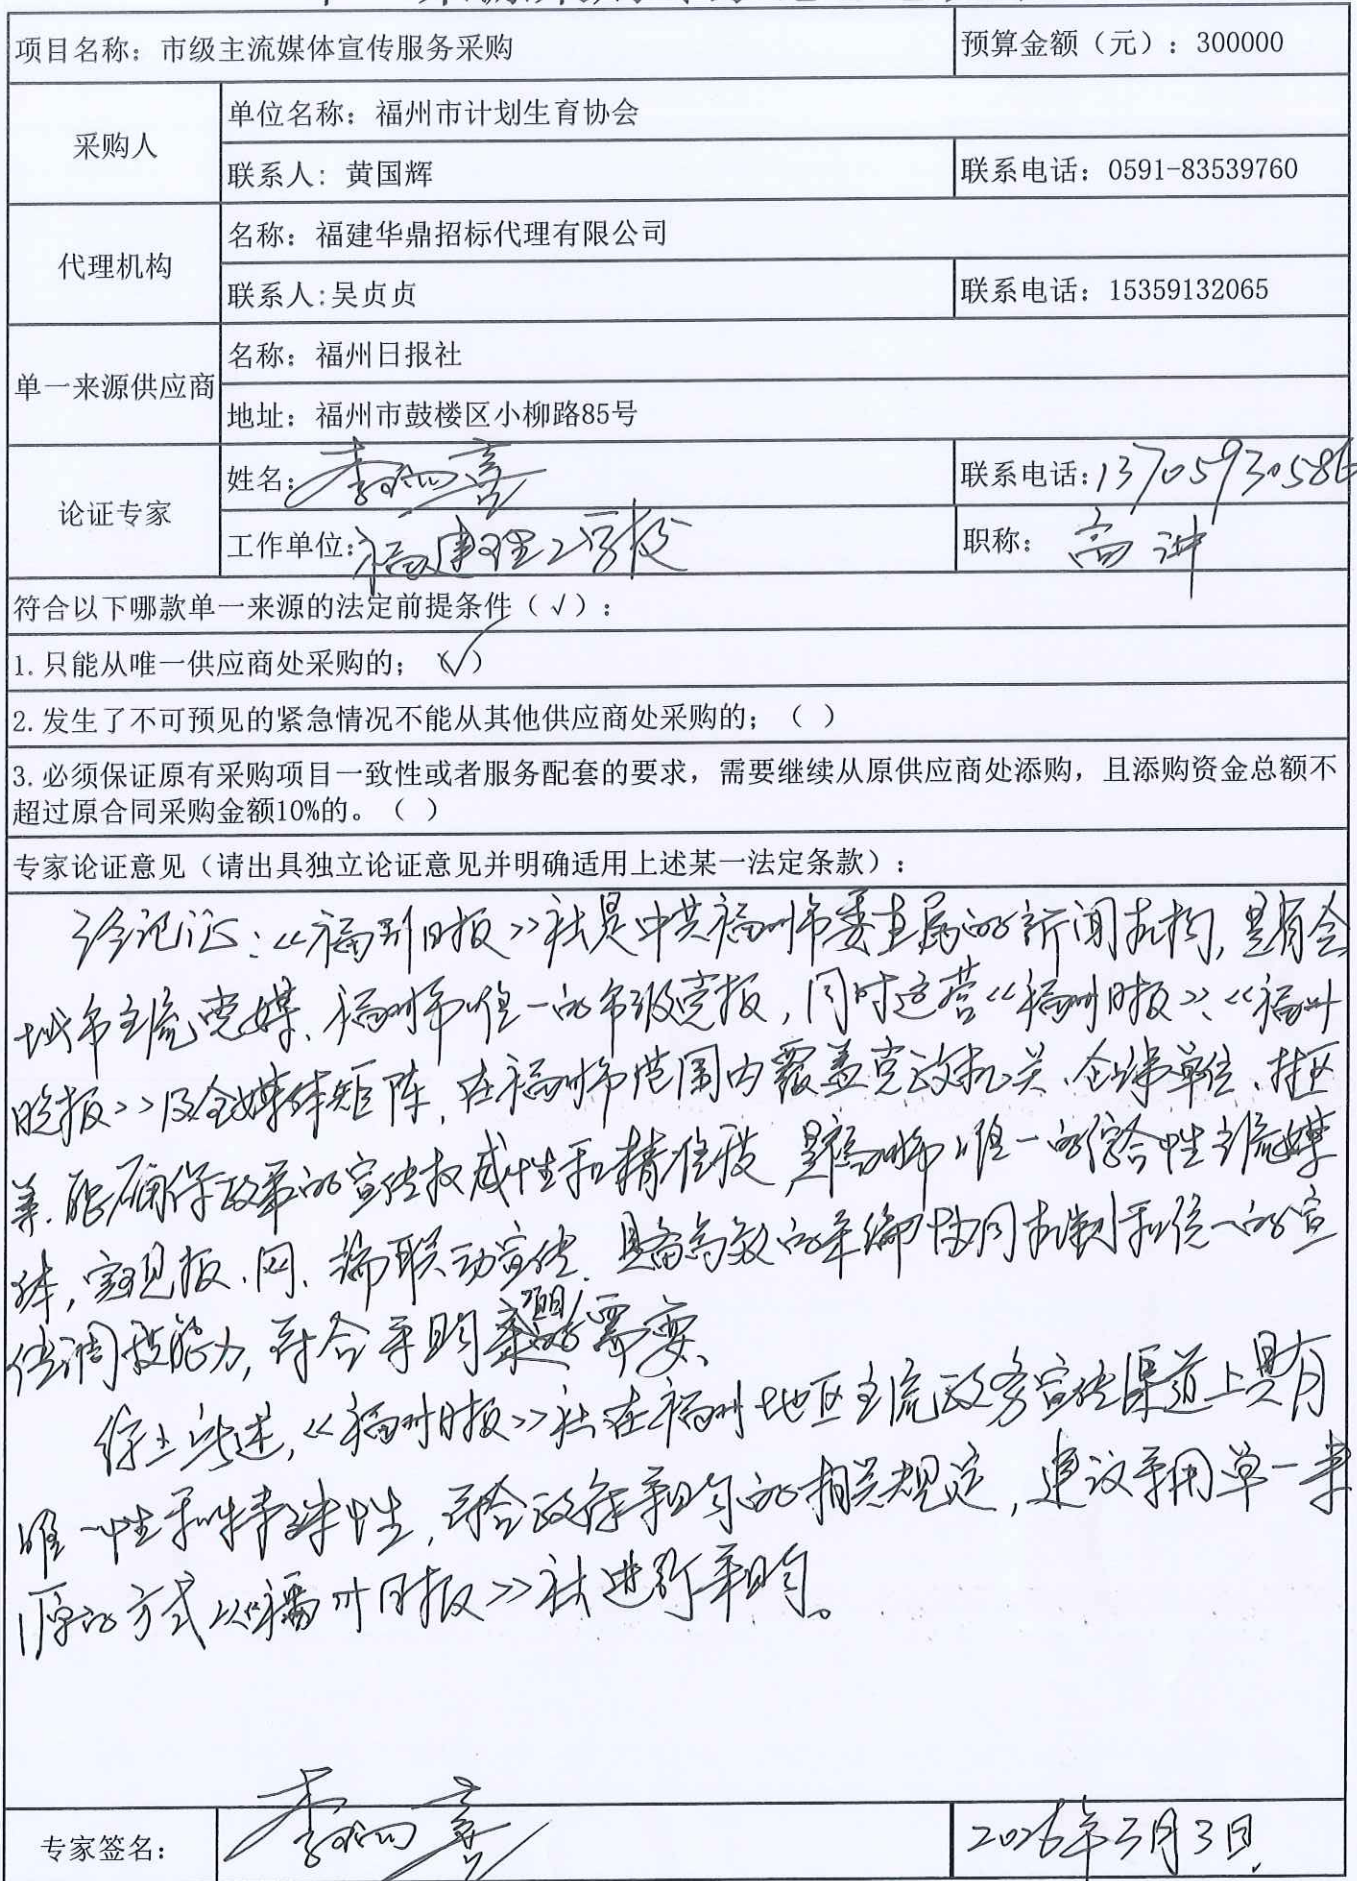 项目名称：市级主流媒体宣传服务采购
预算金额（元）：300000
采购人
单位名称：福州市计划生育协会
联系人：黄国辉
联系电话：0591-83539760
代理机构
名称：福建华鼎招标代理有限公司
联系人:吴贞贞
联系电话：15359132065
单一来源供应商
名称：福州日报社
地址：福州市鼓楼区小柳路85号
论证专家
姓名：李
联系电话:1370593058
工作单位:福建理工学校
职称：高讲
符合以下哪款单一来源的法定前提条件（√）：
1.只能从唯一供应商处采购的；（√）
2.发生了不可预见的紧急情况不能从其他供应商处采购的；（ ）
3.必须保证原有采购项目一致性或者服务配套的要求，需要继续从原供应商处添购，且添购资金总额不
超过原合同采购金额10%的。（ ）
专家论证意见（请出具独立论证意见并明确适用上述某一法定条款）：
经论证：《福州日报》社是中共福州市委直属的新闻机构，是省会
城市主流党媒、福州市唯一的市级党报，同时运营《福州日报》、《福州
晚报》及全媒体矩阵，在福州市范围内覆盖党政机关、企事单位、社区
等，能确保政策的宣传权威性和精准度，是福州市唯一的综合性主流媒
体，实现报、网、端联动宣传，具备高效的采编协同机制和统一的宣
传调度能力，符合采购项目需要、
综上所述，《福州日报》社在福州地区主流政务宣传渠道上具有
唯一性和特殊性，符合政府采购的相关规定，建议采用单一来
源的方式从《福州日报》社进行采购。
专家签名：
李
2026年3月3日